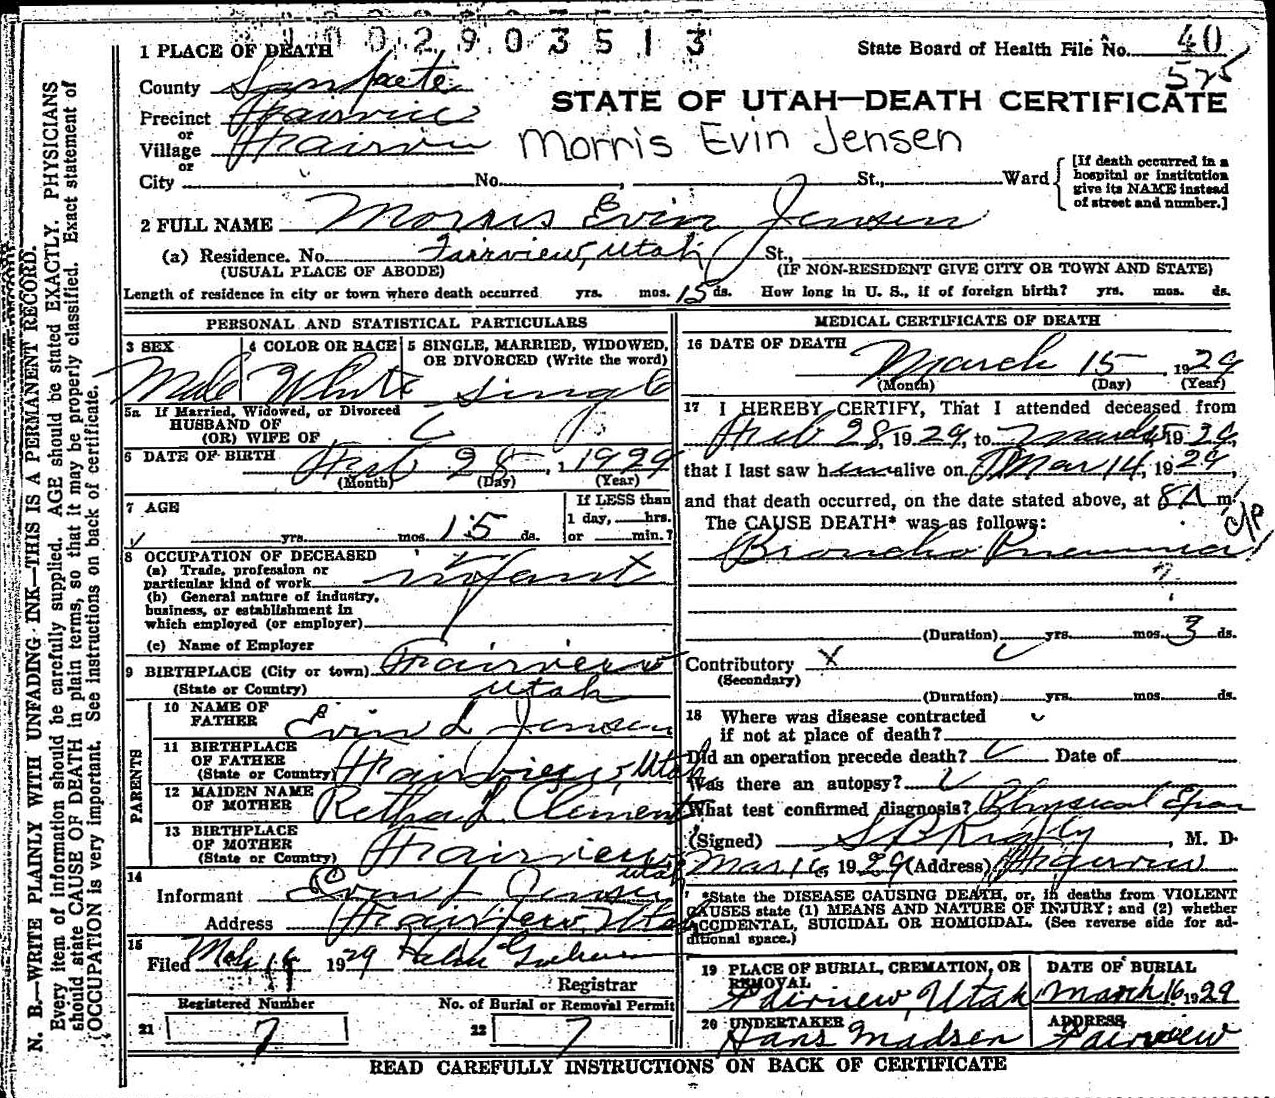 1 0 0 2 9 0 3 5 1 3
1 PLACE OF DEATH
State Board of Health File No. 40
575
County Sanpete
STATE OF UTAH—DEATH CERTIFICATE
Precinct Fairview
or
Village Fairview
Morris Evin Jensen
or
City No. , St., Ward
[If death occurred in a
hospital or institution
give its NAME instead
of street and number.]
2 FULL NAME Morris Evin Jensen
(a) Residence. No. Fairview, Utah St.,
(USUAL PLACE OF ABODE) (IF NON-RESIDENT GIVE CITY OR TOWN AND STATE)
Length of residence in city or town where death occurred yrs. mos. 15 ds. How long in U. S., if of foreign birth? yrs. mos. ds.
PERSONAL AND STATISTICAL PARTICULARS
3 SEX 4 COLOR OR RACE 5 SINGLE, MARRIED, WIDOWED,
OR DIVORCED (Write the word)
Male White Single
5a If Married, Widowed, or Divorced
HUSBAND OF
(OR) WIFE OF
6 DATE OF BIRTH Feb 28, 1929
(Month) (Day) (Year)
7 AGE
If LESS than
1 day, hrs.
yrs. mos. 15 ds. or min.?
8 OCCUPATION OF DECEASED
(a) Trade, profession or
particular kind of work Infant
(b) General nature of industry,
business, or establishment in
which employed (or employer)
(c) Name of Employer
9 BIRTHPLACE (City or town) Fairview
(State or Country) Utah
PARENTS
10 NAME OF
FATHER Evin L Jensen
11 BIRTHPLACE
OF FATHER
(State or Country) Fairview, Utah
12 MAIDEN NAME
OF MOTHER Retha L Clement
13 BIRTHPLACE
OF MOTHER
(State or Country) Fairview Utah
14
Informant Evin L Jensen
Address Fairview, Utah
15
Filed Mch 1929 Registrar
Registered Number No. of Burial or Removal Permit
21 7 22 7
MEDICAL CERTIFICATE OF DEATH
16 DATE OF DEATH
March 15, 1929
(Month) (Day) (Year)
17 I HEREBY CERTIFY, That I attended deceased from
Feb 28, 1929, to March 15 1929,
that I last saw him alive on Mar 14, 1929,
and that death occurred, on the date stated above, at 8 A m.
The CAUSE DEATH* was as follows:
Broncho Pneumonia
(Duration) yrs. mos. 3 ds.
Contributory X
(Secondary)
(Duration) yrs. mos. ds.
18 Where was disease contracted
if not at place of death?
Did an operation precede death? Date of
Was there an autopsy?
What test confirmed diagnosis? Physical Exam
(Signed) , M. D.
Mar 16 1929 (Address) Fairview
*State the DISEASE CAUSING DEATH, or, in deaths from VIOLENT
CAUSES state (1) MEANS AND NATURE OF INJURY; and (2) whether
ACCIDENTAL, SUICIDAL OR HOMICIDAL. (See reverse side for ad-
ditional space.)
19 PLACE OF BURIAL, CREMATION, OR
REMOVAL
Fairview, Utah
DATE OF BURIAL
March 16 1929
20 UNDERTAKER
Hans Madsen
ADDRESS
Fairview
READ CAREFULLY INSTRUCTIONS ON BACK OF CERTIFICATE
N. B.—WRITE PLAINLY WITH UNFADING INK—THIS IS A PERMANENT RECORD.
Every item of information should be carefully supplied. AGE should be stated EXACTLY. PHYSICIANS
should state CAUSE OF DEATH in plain terms, so that it may be properly classified. Exact statement of
OCCUPATION is very important. See instructions on back of certificate.